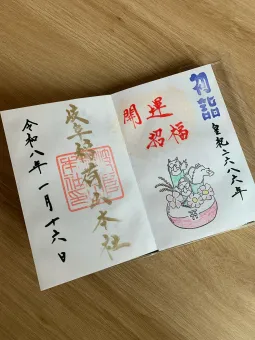 初詣
皇紀二六八六年
開運
招福
岐阜稲荷山本社
令和八年 一月十六日